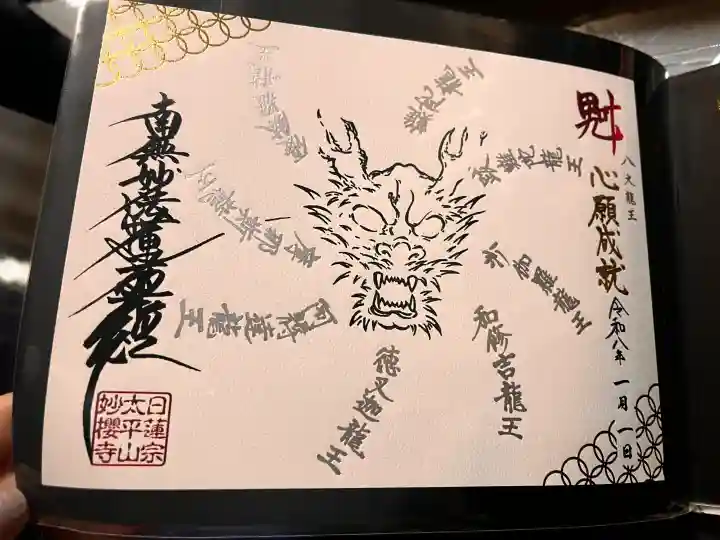 八大龍王
心願成就
令和八年 一月一日
難陀龍王
跋難陀龍王
娑伽羅龍王
和修吉龍王
徳叉迦龍王
阿那婆達多龍王
摩那斯龍王
優鉢羅龍王
南無妙法蓮華経
日蓮宗
太平山
妙櫻寺